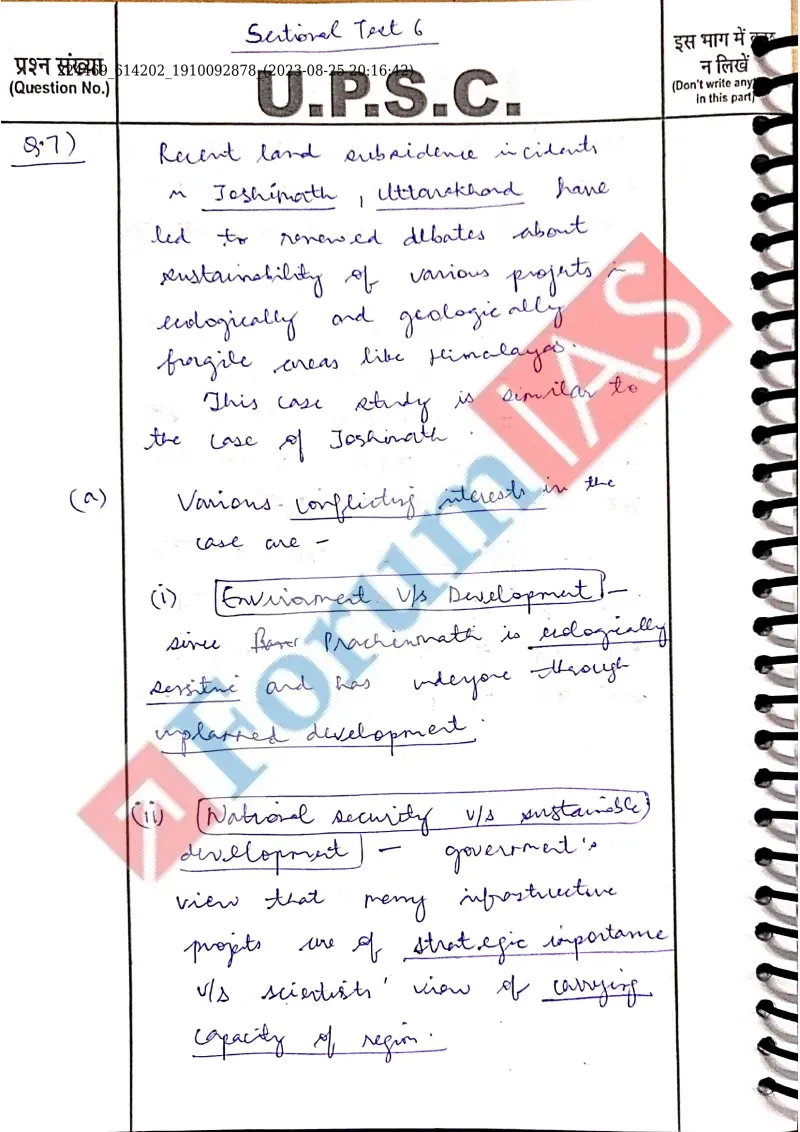 Sectional Test 6
प्रश्न संख्या
(Question No.)
_614202_1910092878 (2023-08-25 20:16:42)
U.P.S.C.
इस भाग में कुछ
न लिखें
(Don't write any
in this part)
Q.7)
Recent land subsidence incidents
in Joshimath, Uttarakhand have
led to renewed debates about
sustainability of various projects in
ecologically and geologically
fragile areas like Himalayas.
This case study is similar to
the case of Joshimath.
(a)
Various conflicting interests in the
case are -
(i) Environment v/s Development -
since Prachinmath is ecologically
sensitive and has undergone through
unplanned development.
(ii) National security v/s sustainable
development - government's
view that many infrastructure
projets are of strategic importance
v/s scientists' view of carrying
capacity of region.
ForumIAS